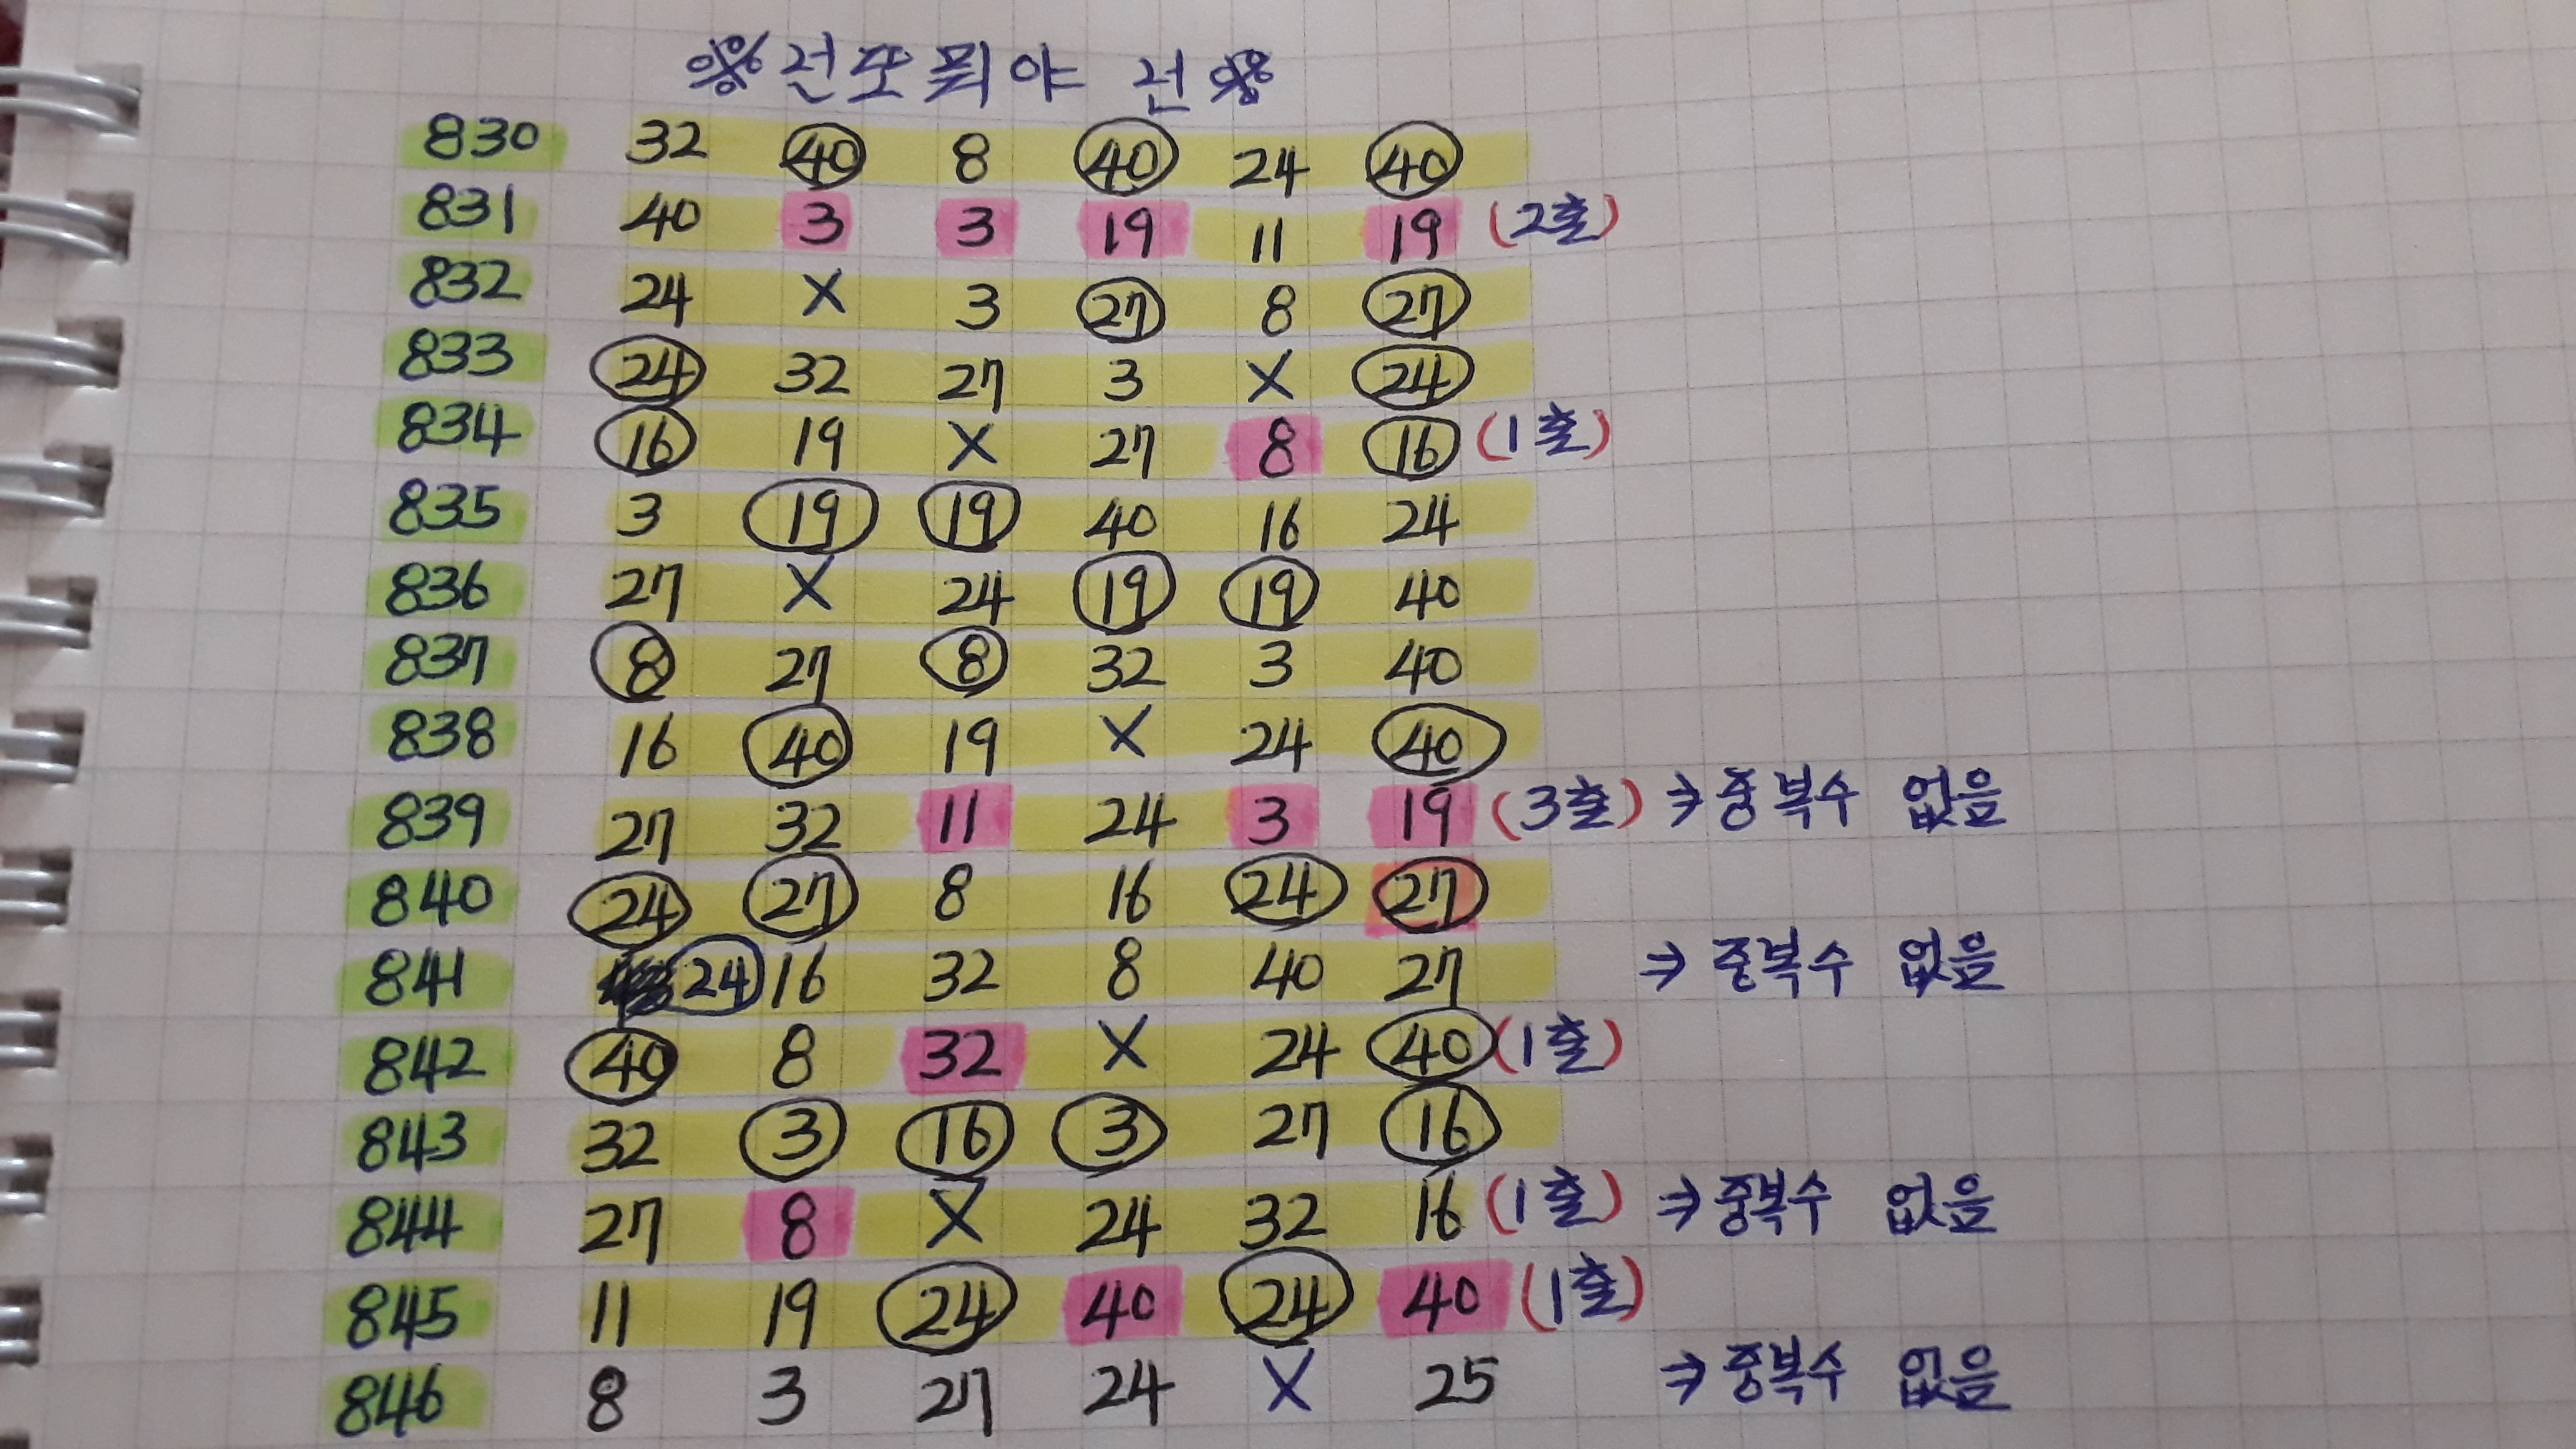 ※ 선또퐈야 선 ※
830 32 40 8 40 24 40
831 40 3 3 19 11 19 (2출)
832 24 X 3 27 8 27
833 24 32 27 3 X 24
834 16 19 X 27 8 16 (1출)
835 3 19 19 40 16 24
836 27 X 24 19 19 40
837 8 27 8 32 3 40
838 16 40 19 X 24 40
839 27 32 11 24 3 19 (3출) ⇒ 중복수 없음
840 24 27 8 16 24 27
841 24 16 32 8 40 27 ⇒ 중복수 없음
842 40 8 32 X 24 40 (1출)
843 32 3 16 3 27 16
844 27 8 X 24 32 16 (1출) ⇒ 중복수 없음
845 11 19 24 40 24 40 (1출)
846 8 3 27 24 X 25 ⇒ 중복수 없음